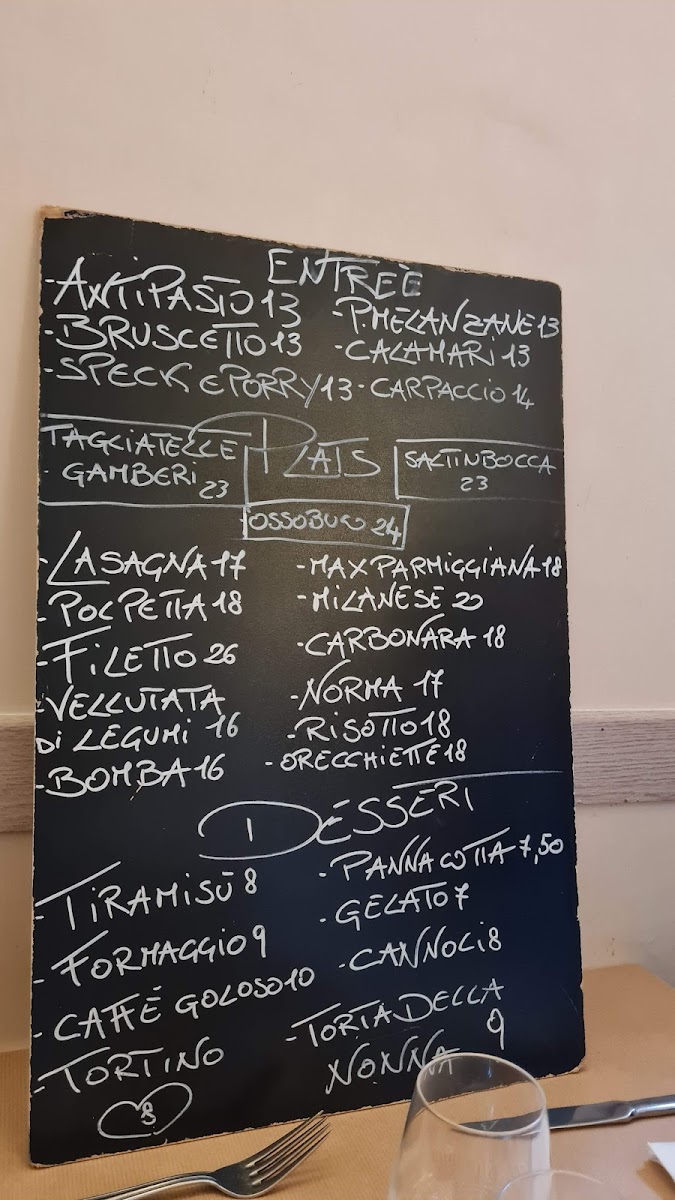 ENTREÈ
-ANTIPASTO 13
-BRUSCETTO 13
-SPECK e PORRY 13
-P.MELANZANE 13
-CALAMARI 13
-CARPACCIO 14
PLATS
TAGLIATELLE
GAMBERI 23
SALTINBOCCA
23
OSSOBUCO 24
-LASAGNA 17
-POLPETTA 18
-FILETTO 26
-VELLUTATA
Di LEGUMI 16
-BOMBA 16
-MAX PARMIGGIANA 18
-MILANESE 20
-CARBONARA 18
-NORMA 17
-RISOTTO 18
-ORECCHIETTE 18
DESSERT
-TIRAMISÙ 8
-FORMAGGIO 9
-CAFFÈ GOLOSO 10
-TORTINO
8
-PANNA COTTA 7,50
-GELATO 7
-CANNOLI 8
-TORTA DELLA
NONNA 9